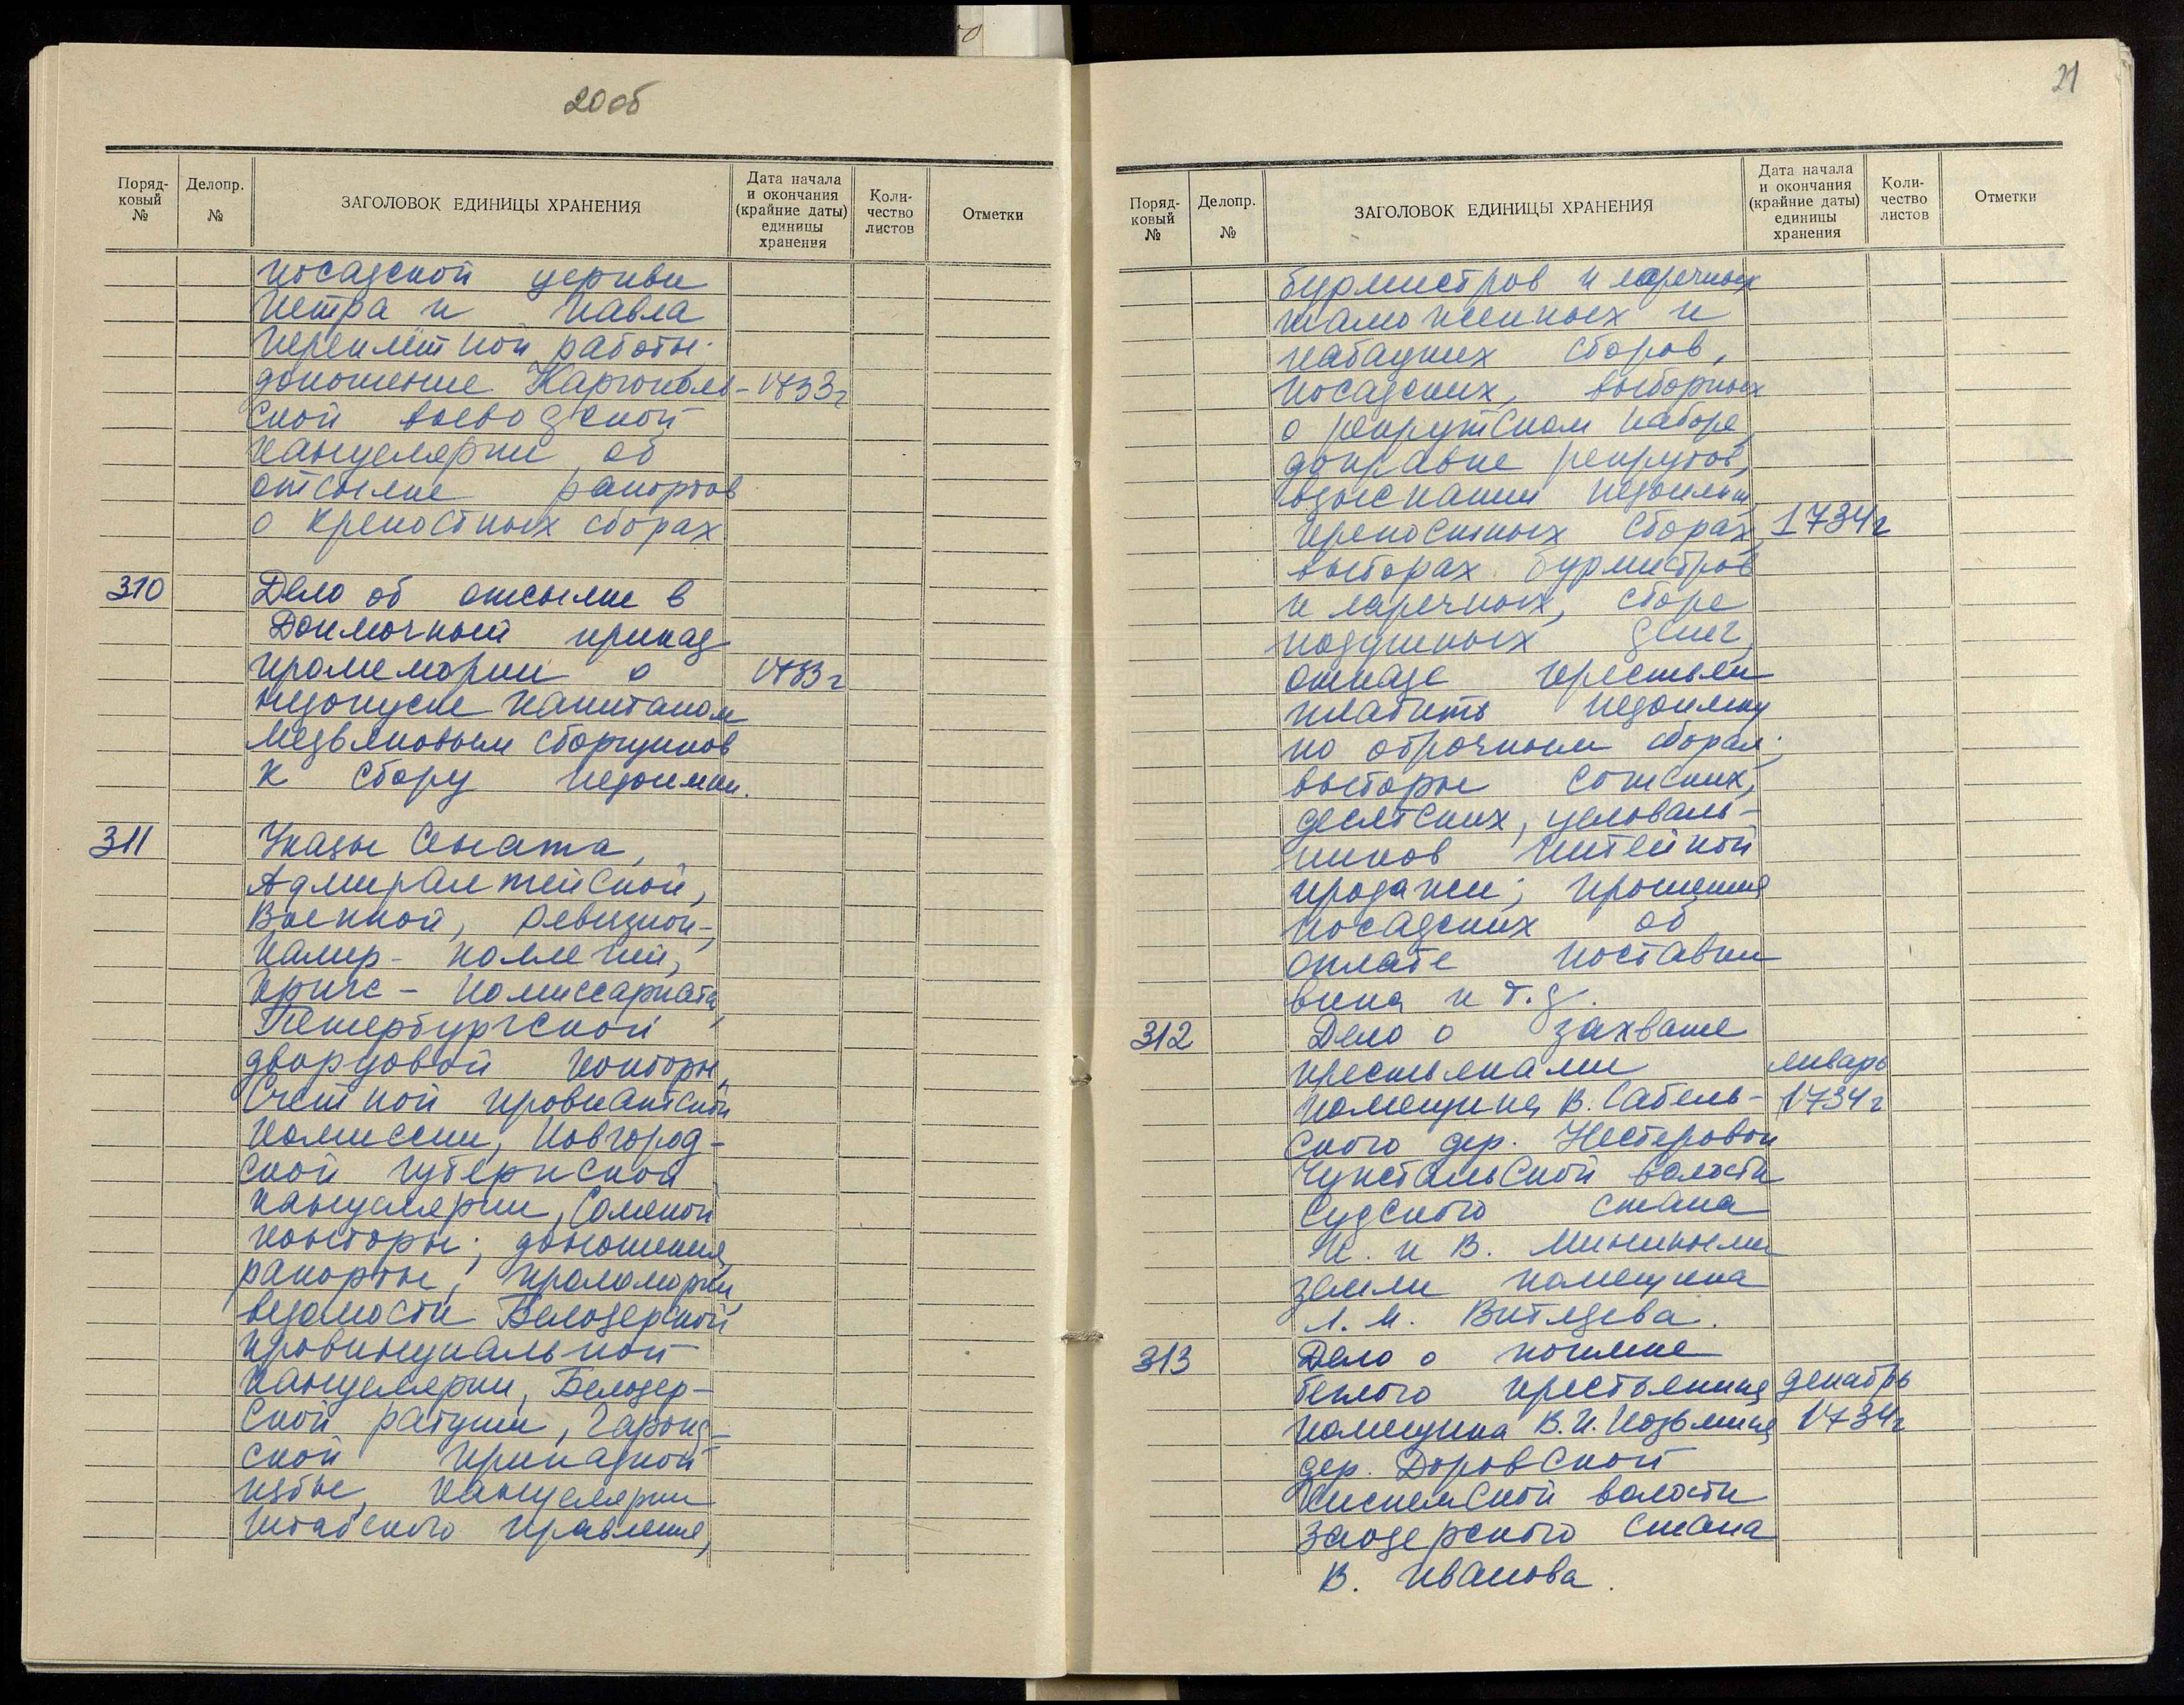 20об
Поряд-
ковый
№
Делопр.
№
ЗАГОЛОВОК ЕДИНИЦЫ ХРАНЕНИЯ
Дата начала
и окончания
(крайние даты)
единицы
хранения
Коли-
чество
листов
Отметки
посадской церкви
Петра и Павла
переплётной работы;
доношение Каргополь- 1733г
ской воеводской
канцелярии об
отсылке рапортов
о крепостных сборах
310 Дело об отсылке в
Доимочный приказ
промемории о 1733г
недопуске капитаном
Медвяновым сборщиков
к сбору недоимки.
311 Указы Сената,
Адмиралтейской,
Военной, Ревизион-,
Камер- коллегий,
Кригс- комиссариата,
Петербургской
дворцовой конторы,
Счетной провиантской
комиссии, Новгород-
ской губернской
канцелярии, Соляной
конторы; доношения,
рапорты, промемории,
ведомости Белозерской
провинциальной
канцелярии, Белозер-
ской ратуши, Чаронд-
ской приказной
избы, канцелярии
штабского правления,
21
Поряд-
ковый
№
Делопр.
№
ЗАГОЛОВОК ЕДИНИЦЫ ХРАНЕНИЯ
Дата начала
и окончания
(крайние даты)
единицы
хранения
Коли-
чество
листов
Отметки
бурмистров и ларечных
таможенных и
кабацких сборов,
посадских, выборных
о рекрутском наборе,
доправке рекрутов,
взыскании недоимки,
крепостных сборах, 1734г
выборах бурмистров
и ларечных, сборе
подушных денег,
отказе крестьян
платить недоимку
по оброчным сборам;
выборы сотских,
десятских, целоваль-
ников питейной
продажи; прошения
посадских об
оплате поставки
вина и т.д.
312 Дело о захвате
крестьянами январь
помещика В. Сабель- 1734г
ского дер. Нестеровой
Чунстальской волости
Судского стана
И. и В. Миниными
земли помещика
Л. М. Витязева.
313 Дело о поимке
беглого крестьянина декабрь
помещика В.И. Козьмина 1734г
дер. Доровской
Киснемской волости
Заозерского стана
В. Иванова.